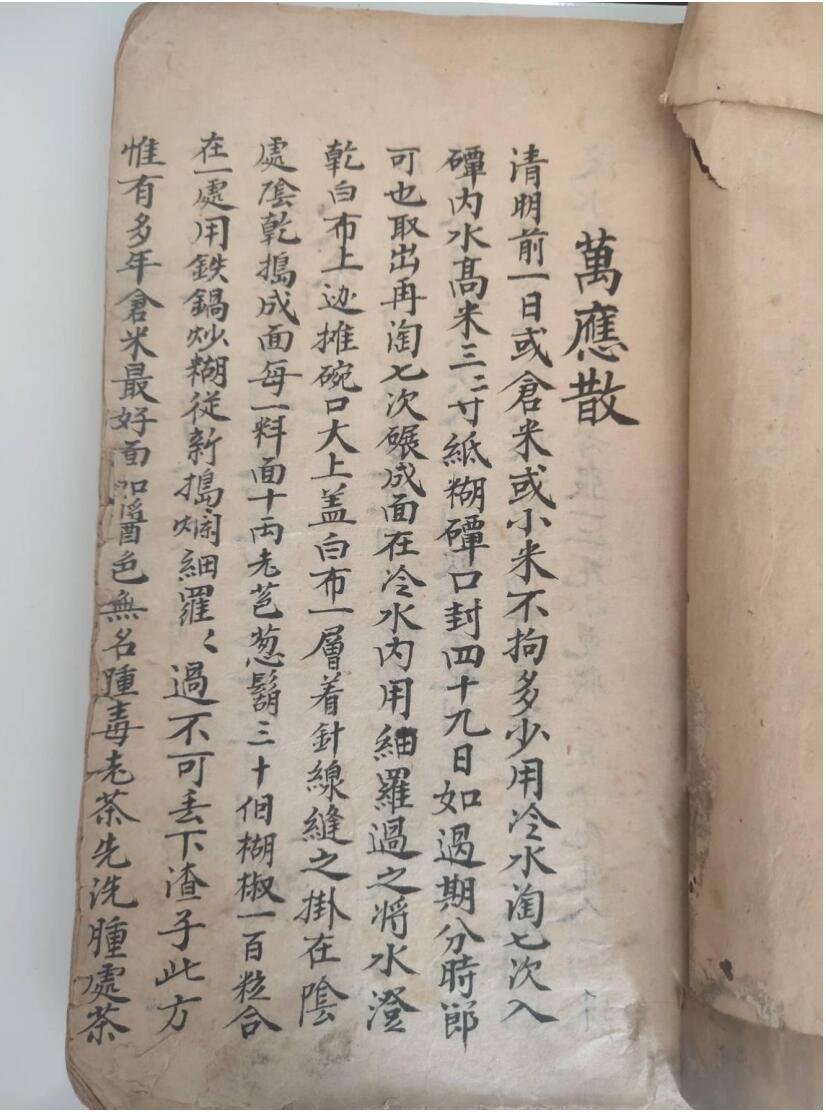 萬應散
清明前一日或倉米或小米不拘多少用冷水淘七次入
磾内水髙米三二寸紙糊磾口封四十九日如過期分時郎
可也取出再淘七次碾成面在冷水内用細羅過之将水澄
乾白布上边摊碗口大上盖白布一層着針線縫之掛在陰
處陰乾搗成面每一料面十両老芭葱鬍三十個糊椒一百粒合
在一處用鉄鍋炒糊従新搗爛細羅羅過不可丢下渣子此方
惟有多年倉米最好面如醬色無名腫毒老茶先洗腫處茶